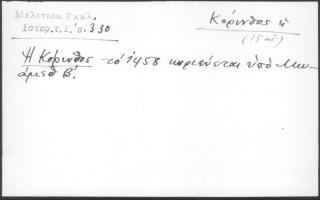 Μελετίου.Εκκλ.
Ιστορ.τ.Γ'.σ.330
Κόρινθος ἡ
(15 αἰ)
Ἡ Κόρινθος τό 1458 κυριεύεται ὑπό Μω-
άμεθ Β'.